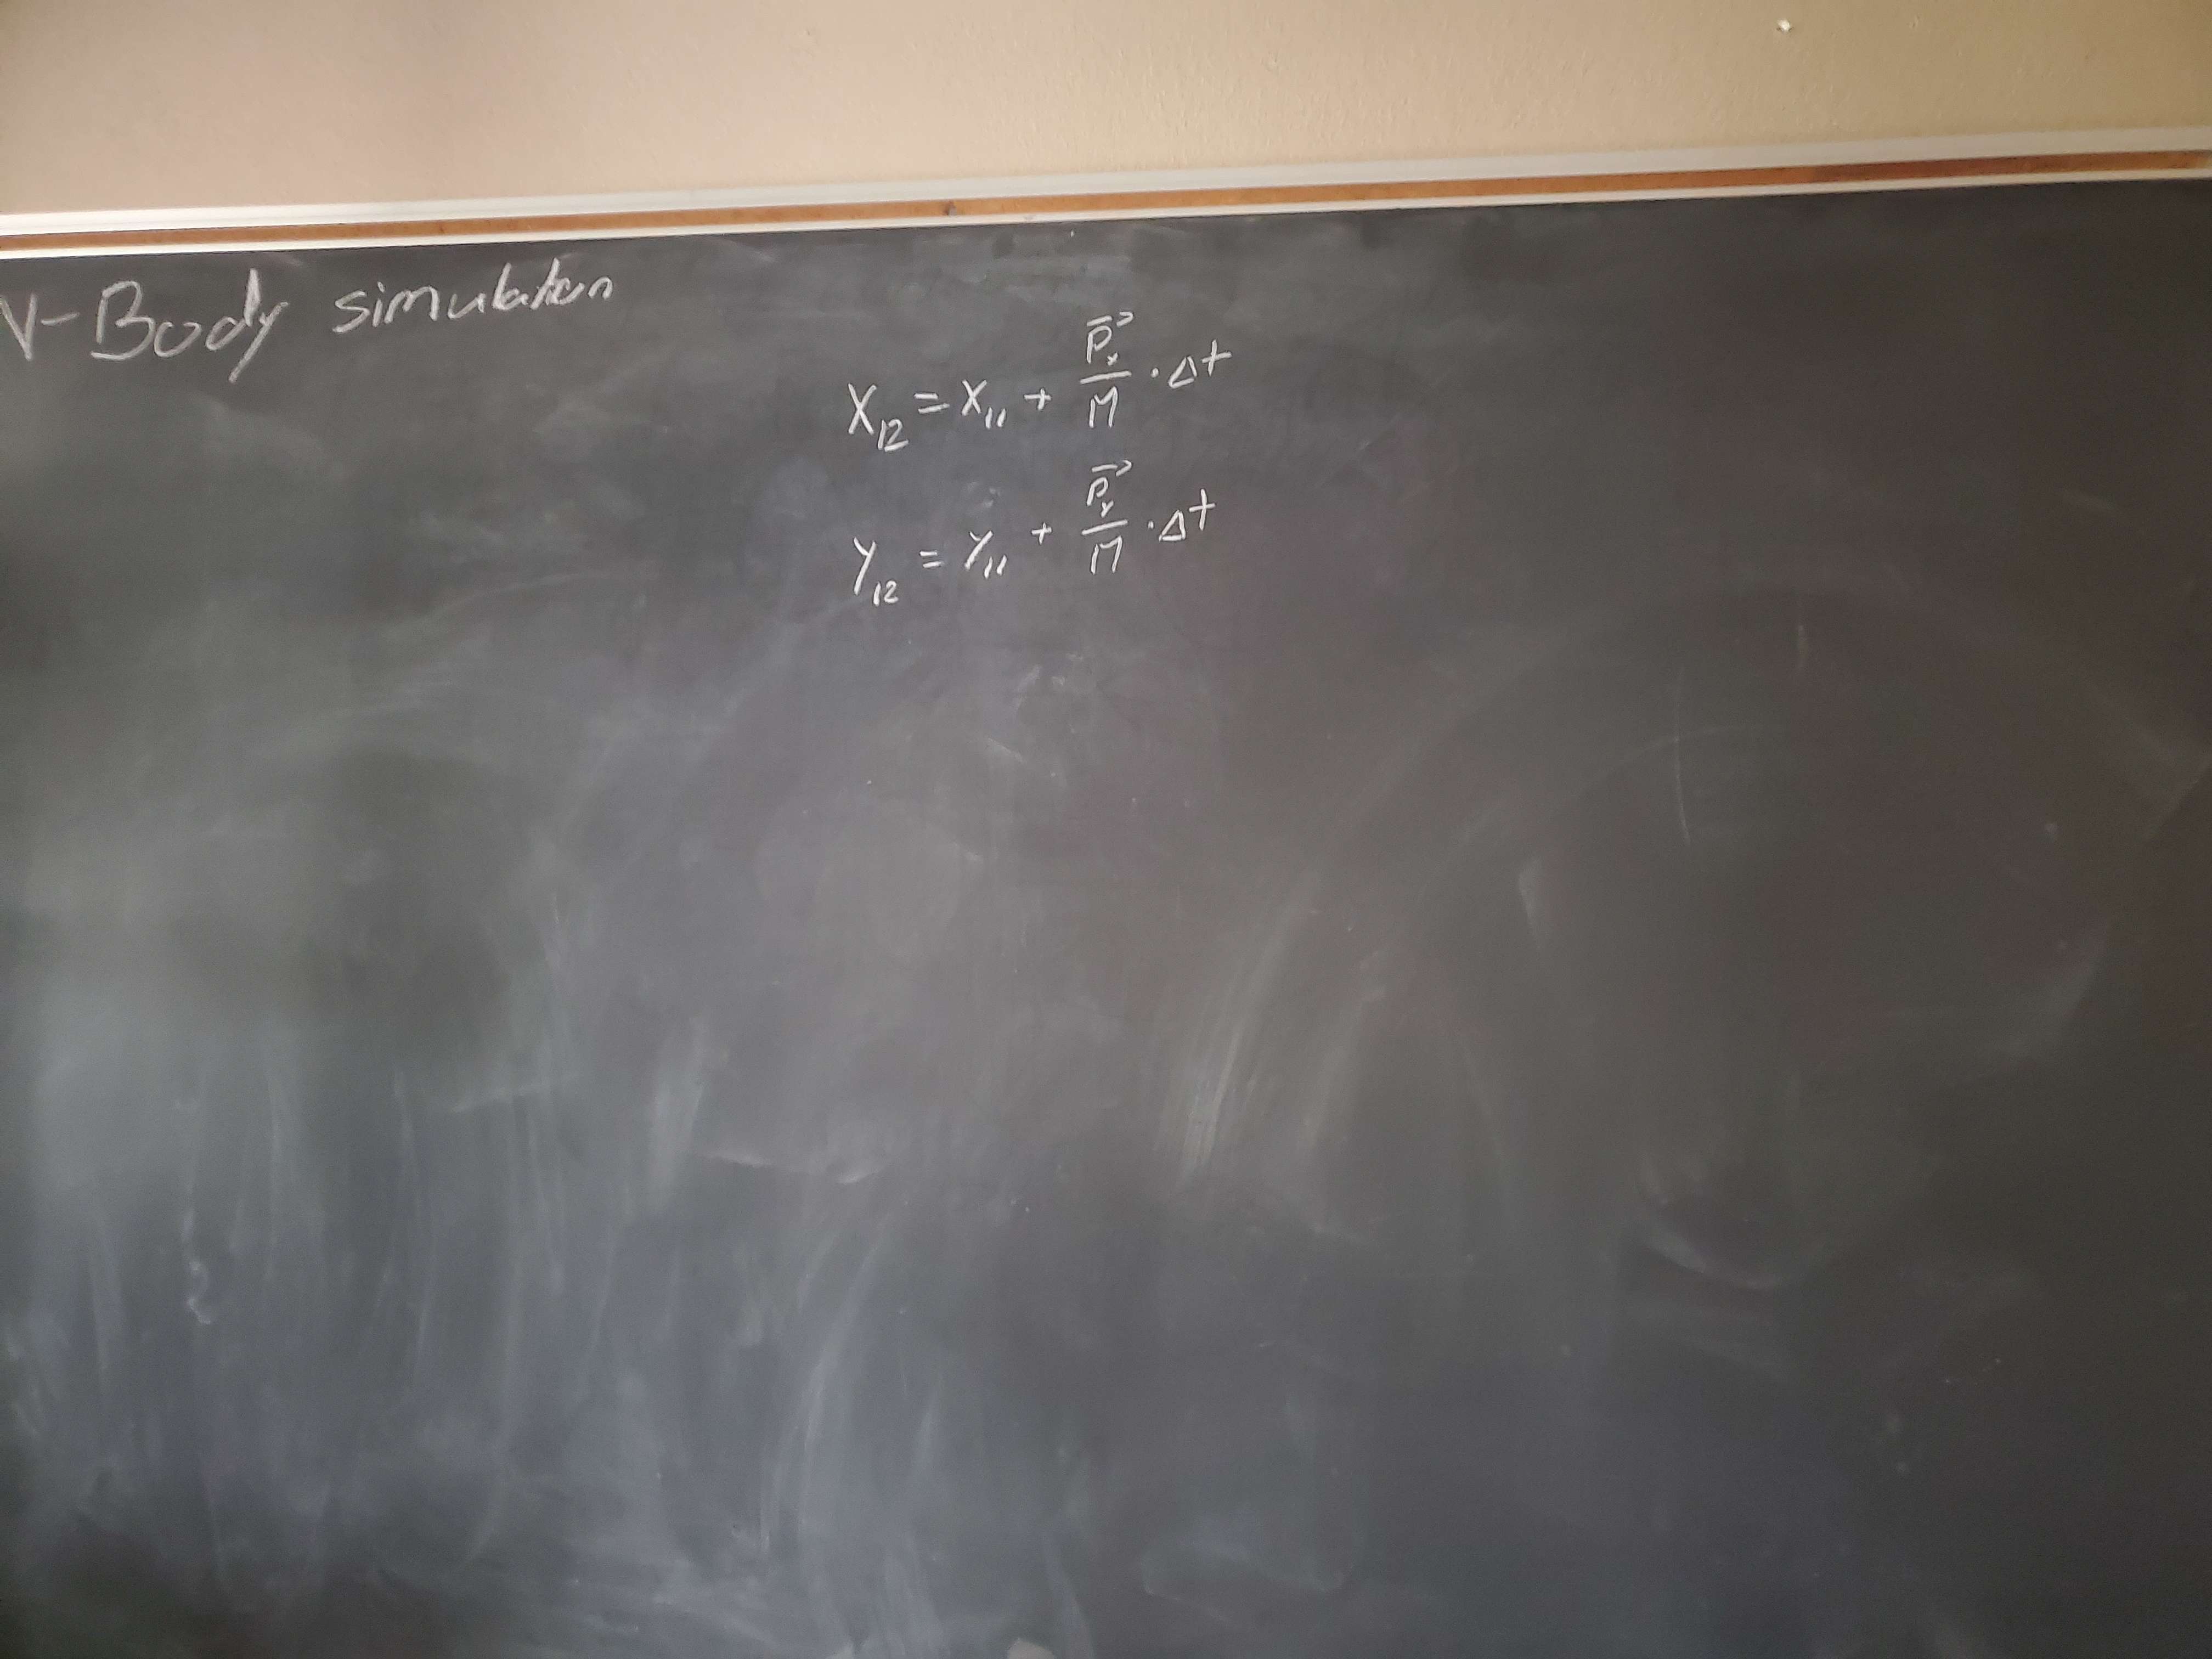 N-Body simulation
X₁₂ = X₁₁ + P⃗ₓ/M · Δt
Y₁₂ = Y₁₁ + P⃗ᵧ/M · Δt